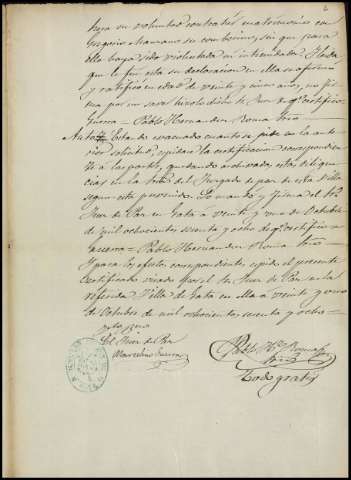 haya su voluntad contraher matrimonio con
Gregorio Manzano su convecino, sin que para
ello haya sido violentada ni intimidada. Leida
que le fue esta su declaracion en ella se afirmó
y ratificó en edad de veinte y cinco años, no fir
ma por no saver hizolo dicho Sr. Juez de q.e certifico
Guerra = Pablo Hernandez Roma Srio =
Auto = Estando evacuado cuanto se pide en la ante
rior solicitud, espidase la certificacion correspondien
te á las partes, quedando archivadas estas diligen
cias en la Sria del Juzgado de paz de esta Villa
segun esta prevenido. Lo mandó y firma el Sr
Juez de Paz en Gata á veinte y uno de Octubre
de mil ochocientos sesenta y ocho de q.e certifico =
Guerra = Pablo Hernandez Roma Srio =
Y para los efectos correspondientes espido el presente
certificado visado por el Sr. Juez de Paz en la
referida Villa de Gata en ella á veinte y uno
de Octubre de mil ochocientos sesenta y ocho =
El Juez de Paz
Marcelino Guerra
Pablo Hz Roma
Srio
Todo gratis